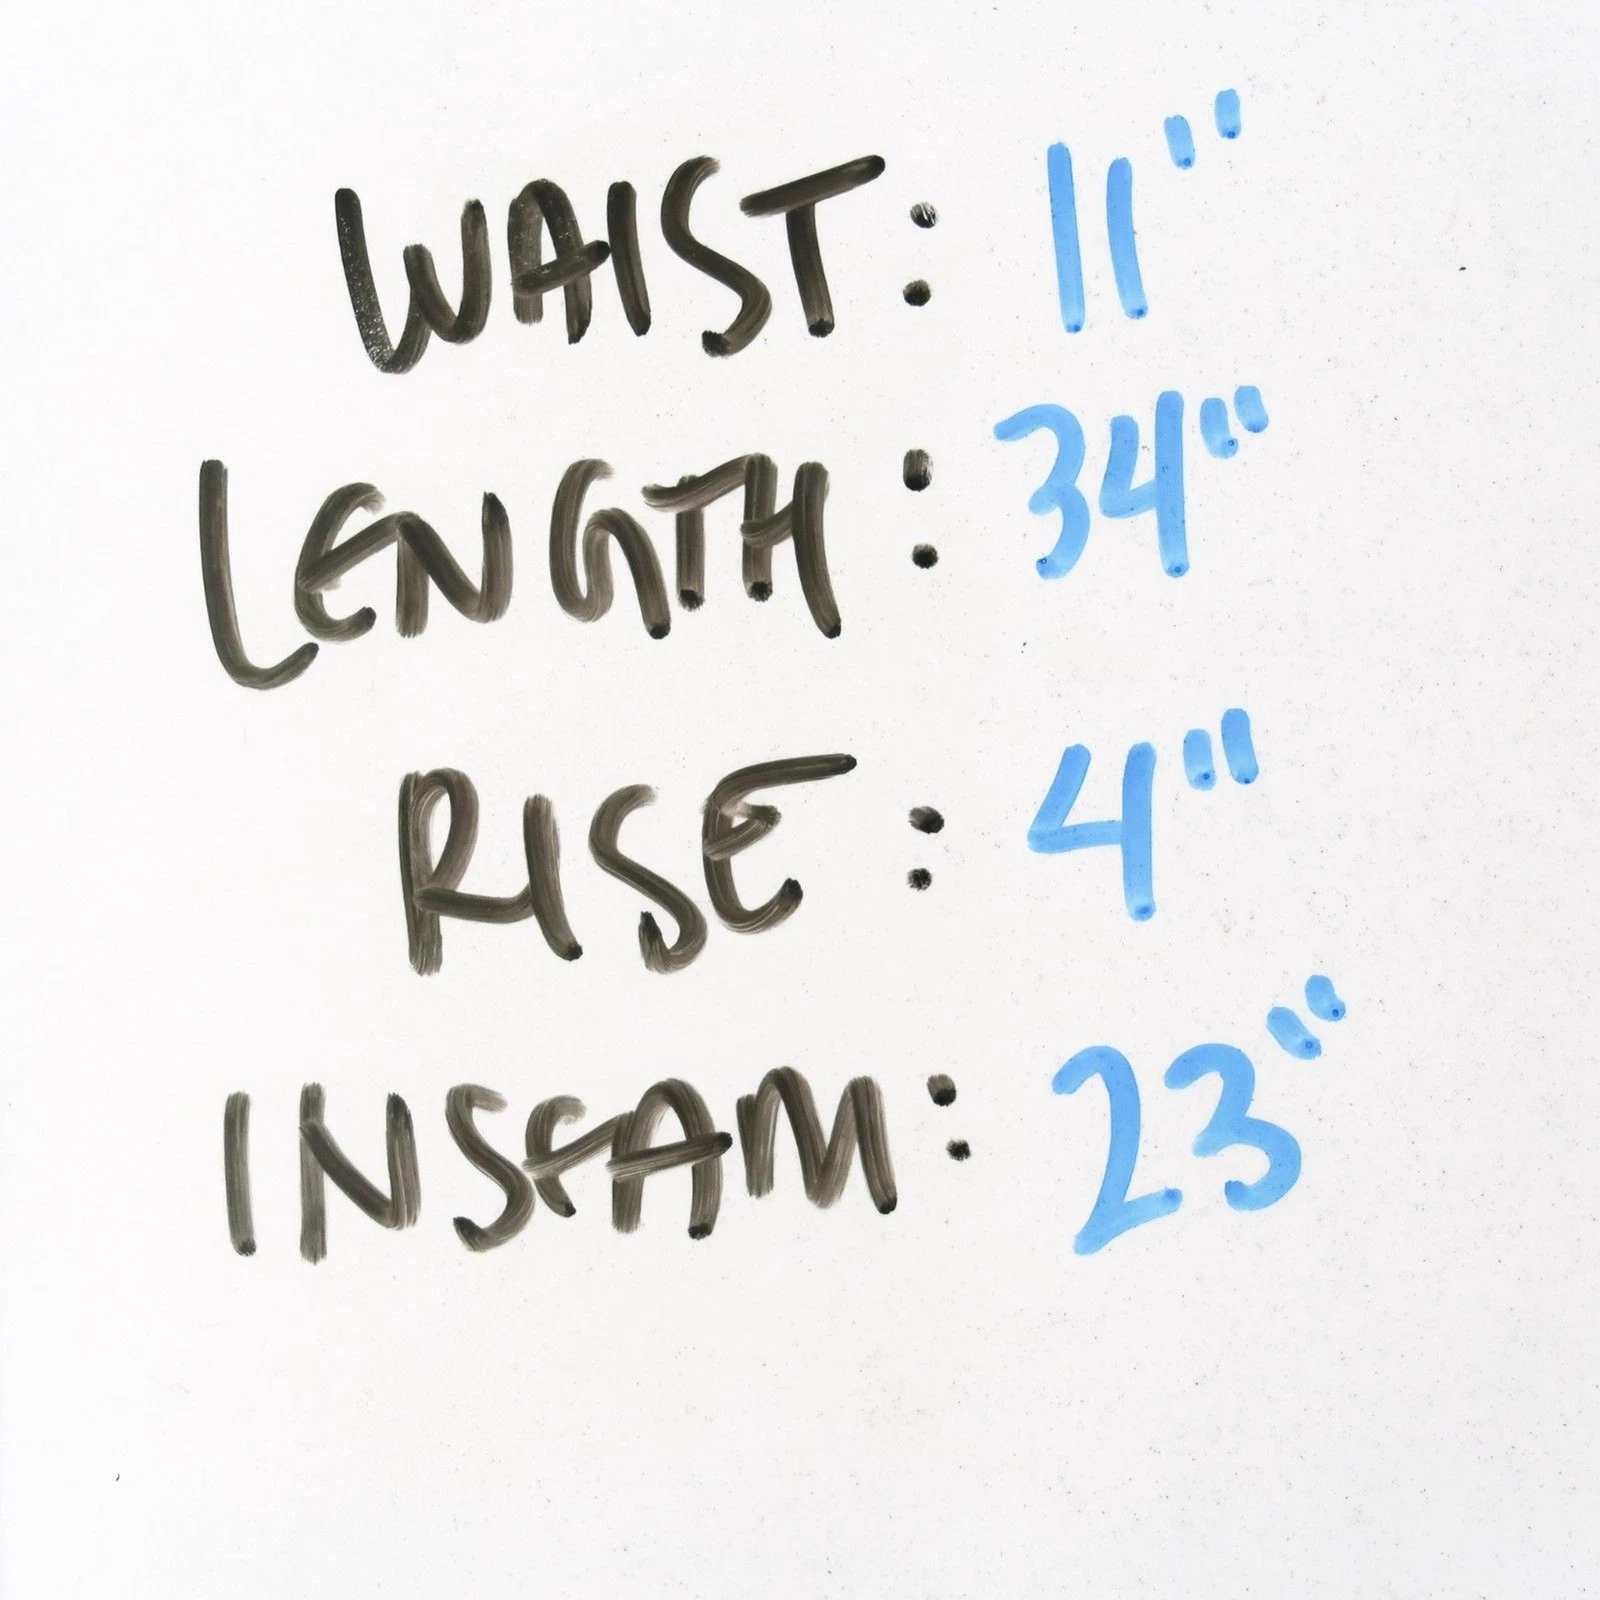 WAIST: 11"
LENGTH: 34"
RISE: 4"
INSEAM: 23"